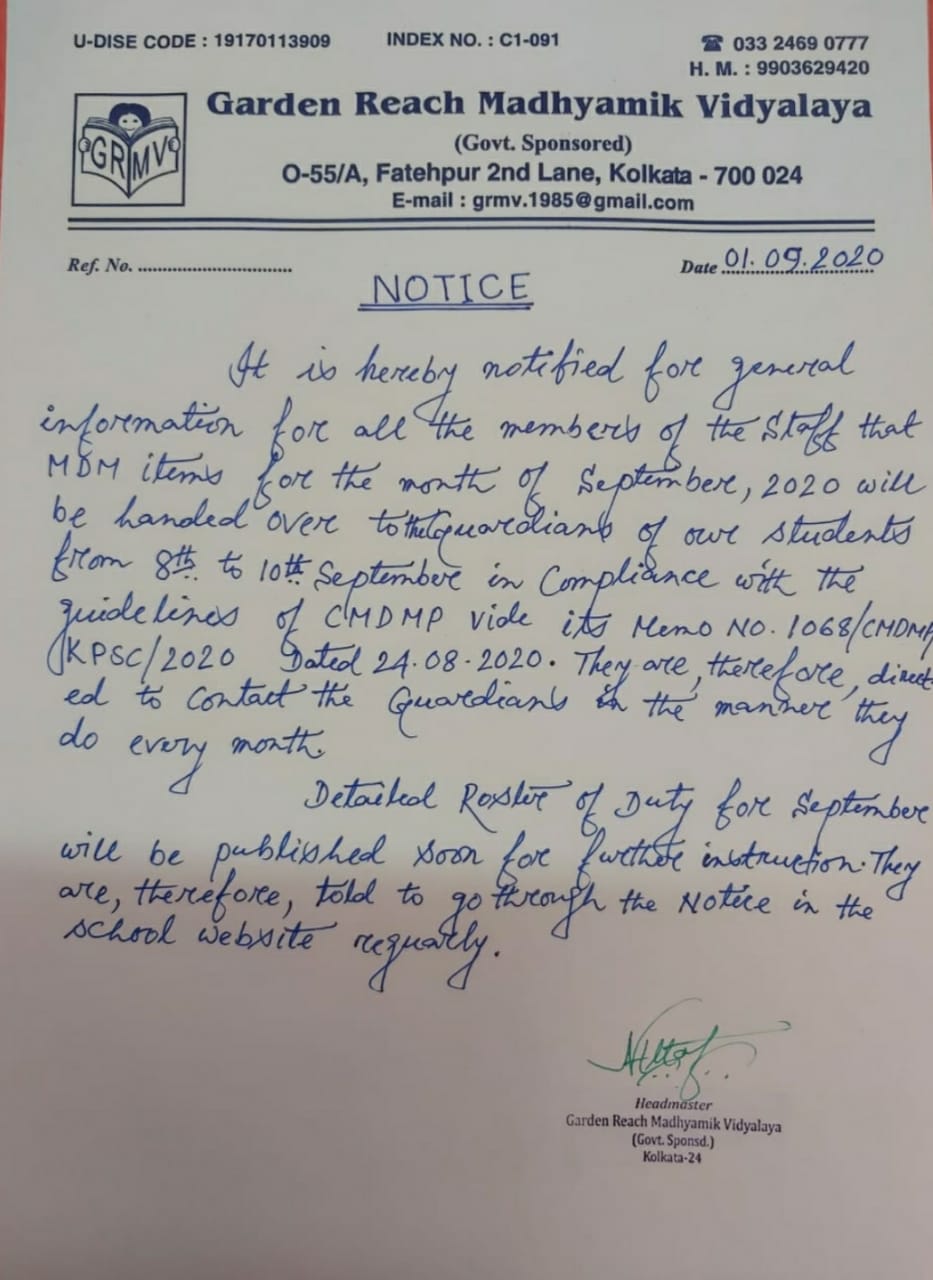 U-DISE CODE : 19170113909 INDEX NO. : C1-091 ☎ 033 2469 0777
H. M. : 9903629420
GRMV
Garden Reach Madhyamik Vidyalaya
(Govt. Sponsored)
O-55/A, Fatehpur 2nd Lane, Kolkata - 700 024
E-mail : grmv.1985@gmail.com
Ref. No. .................................. Date 01.09.2020
NOTICE
It is hereby notified for general
information for all the members of the Staff that
MDM items for the month of September, 2020 will
be handed over to the Guardians of our students
from 8th to 10th September in Compliance with the
guidelines of CMDMP vide its Memo NO. 1068/CMDMP/
KPSC/2020 Dated 24.08.2020. They are, therefore, direct-
ed to contact the Guardians in the manner they
do every month.
Detailed Roster of Duty for September
will be published soon for further instruction. They
are, therefore, told to go through the Notice in the
school website reguarly.
Headmaster
Garden Reach Madhyamik Vidyalaya
(Govt. Sponsd.)
Kolkata-24